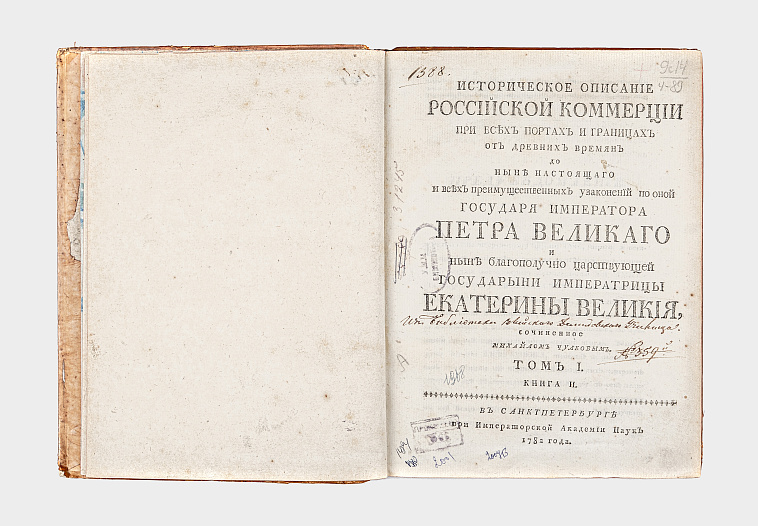 1388.
9с14
4-89
ИСТОРИЧЕСКОЕ ОПИСАНІЕ
РОССІЙСКОЙ КОММЕРЦІИ
ПРИ ВСѢХЪ ПОРТАХЪ И ГРАНИЦАХЪ
ОТЪ ДРЕВНИХЪ ВРЕМЯНЪ
ДО
НЫНѢ НАСТОЯЩАГО
И ВСѢХЪ ПРЕИМУЩЕСТВЕННЫХЪ УЗАКОНЕНІЙ ПО ОНОЙ
ГОСУДАРЯ ИМПЕРАТОРА
ПЕТРА ВЕЛИКАГО
И
НЫНѢ БЛАГОПОЛУЧНО ЦАРСТВУЮЩЕЙ
ГОСУДАРЫНИ ИМПЕРАТРИЦЫ
ЕКАТЕРИНЫ ВЕЛИКІЯ,
Изъ библіотеки
СОЧИНЕННОЕ
МИХАЙЛОМЪ ЧУЛКОВЫМЪ.
ТОМЪ I.
КНИГА II.
ВЪ САНКТПЕТЕРБУРГѢ
при Императорской Академіи Наукъ
1782 года.